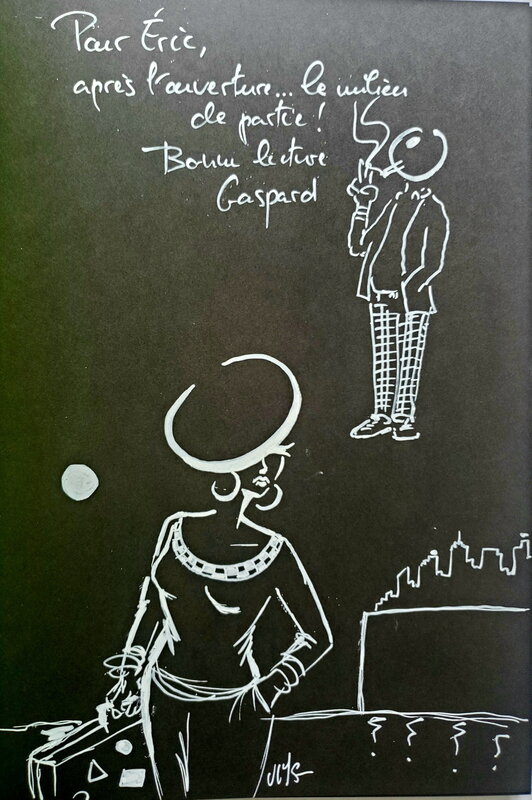 Pour Éric,
après l'ouverture... le milieu
de partie !
Bonne lecture
Gaspard